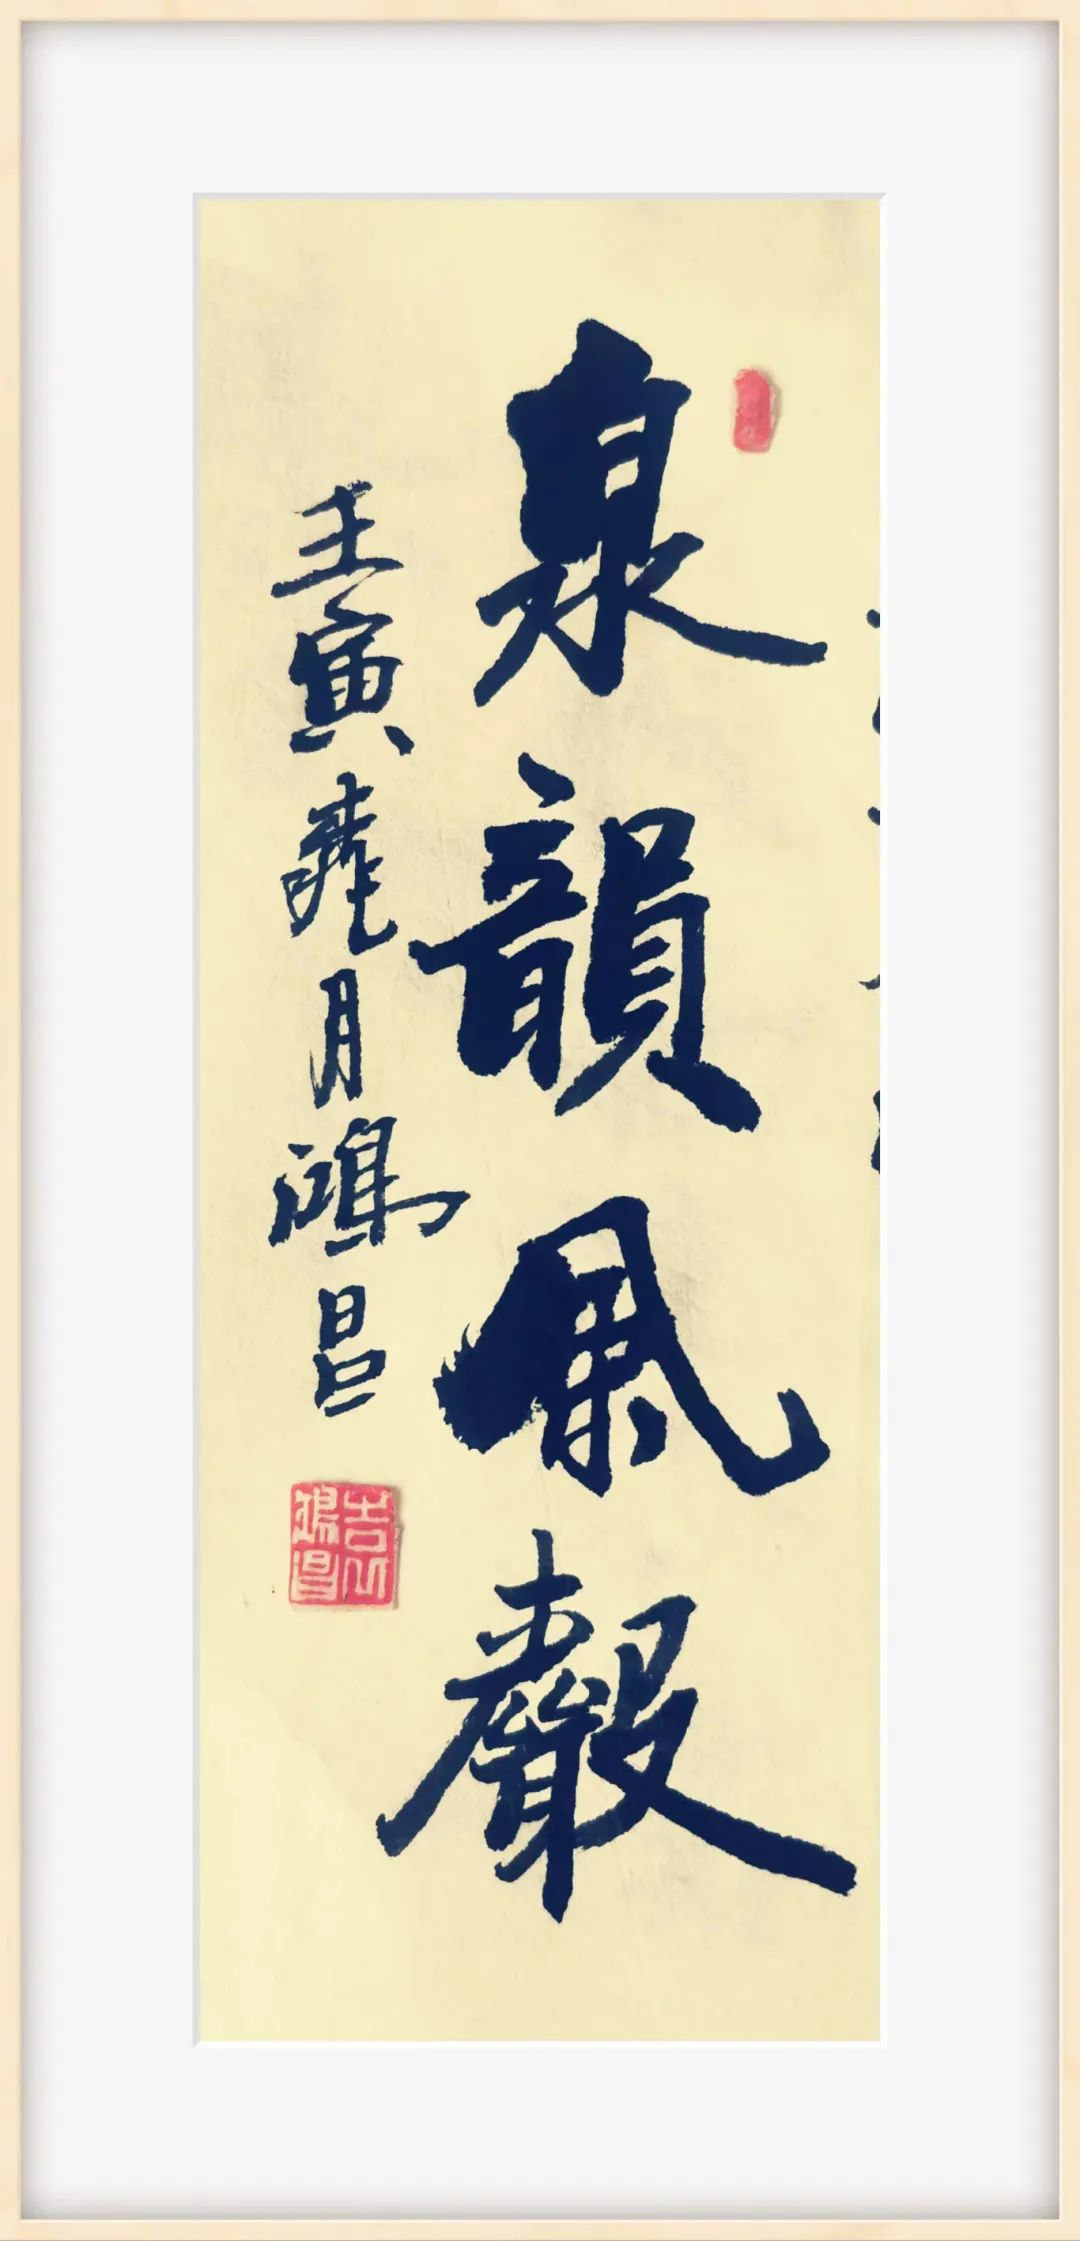 泉韻風聲
壬寅月鴻昌
吉鴻昌